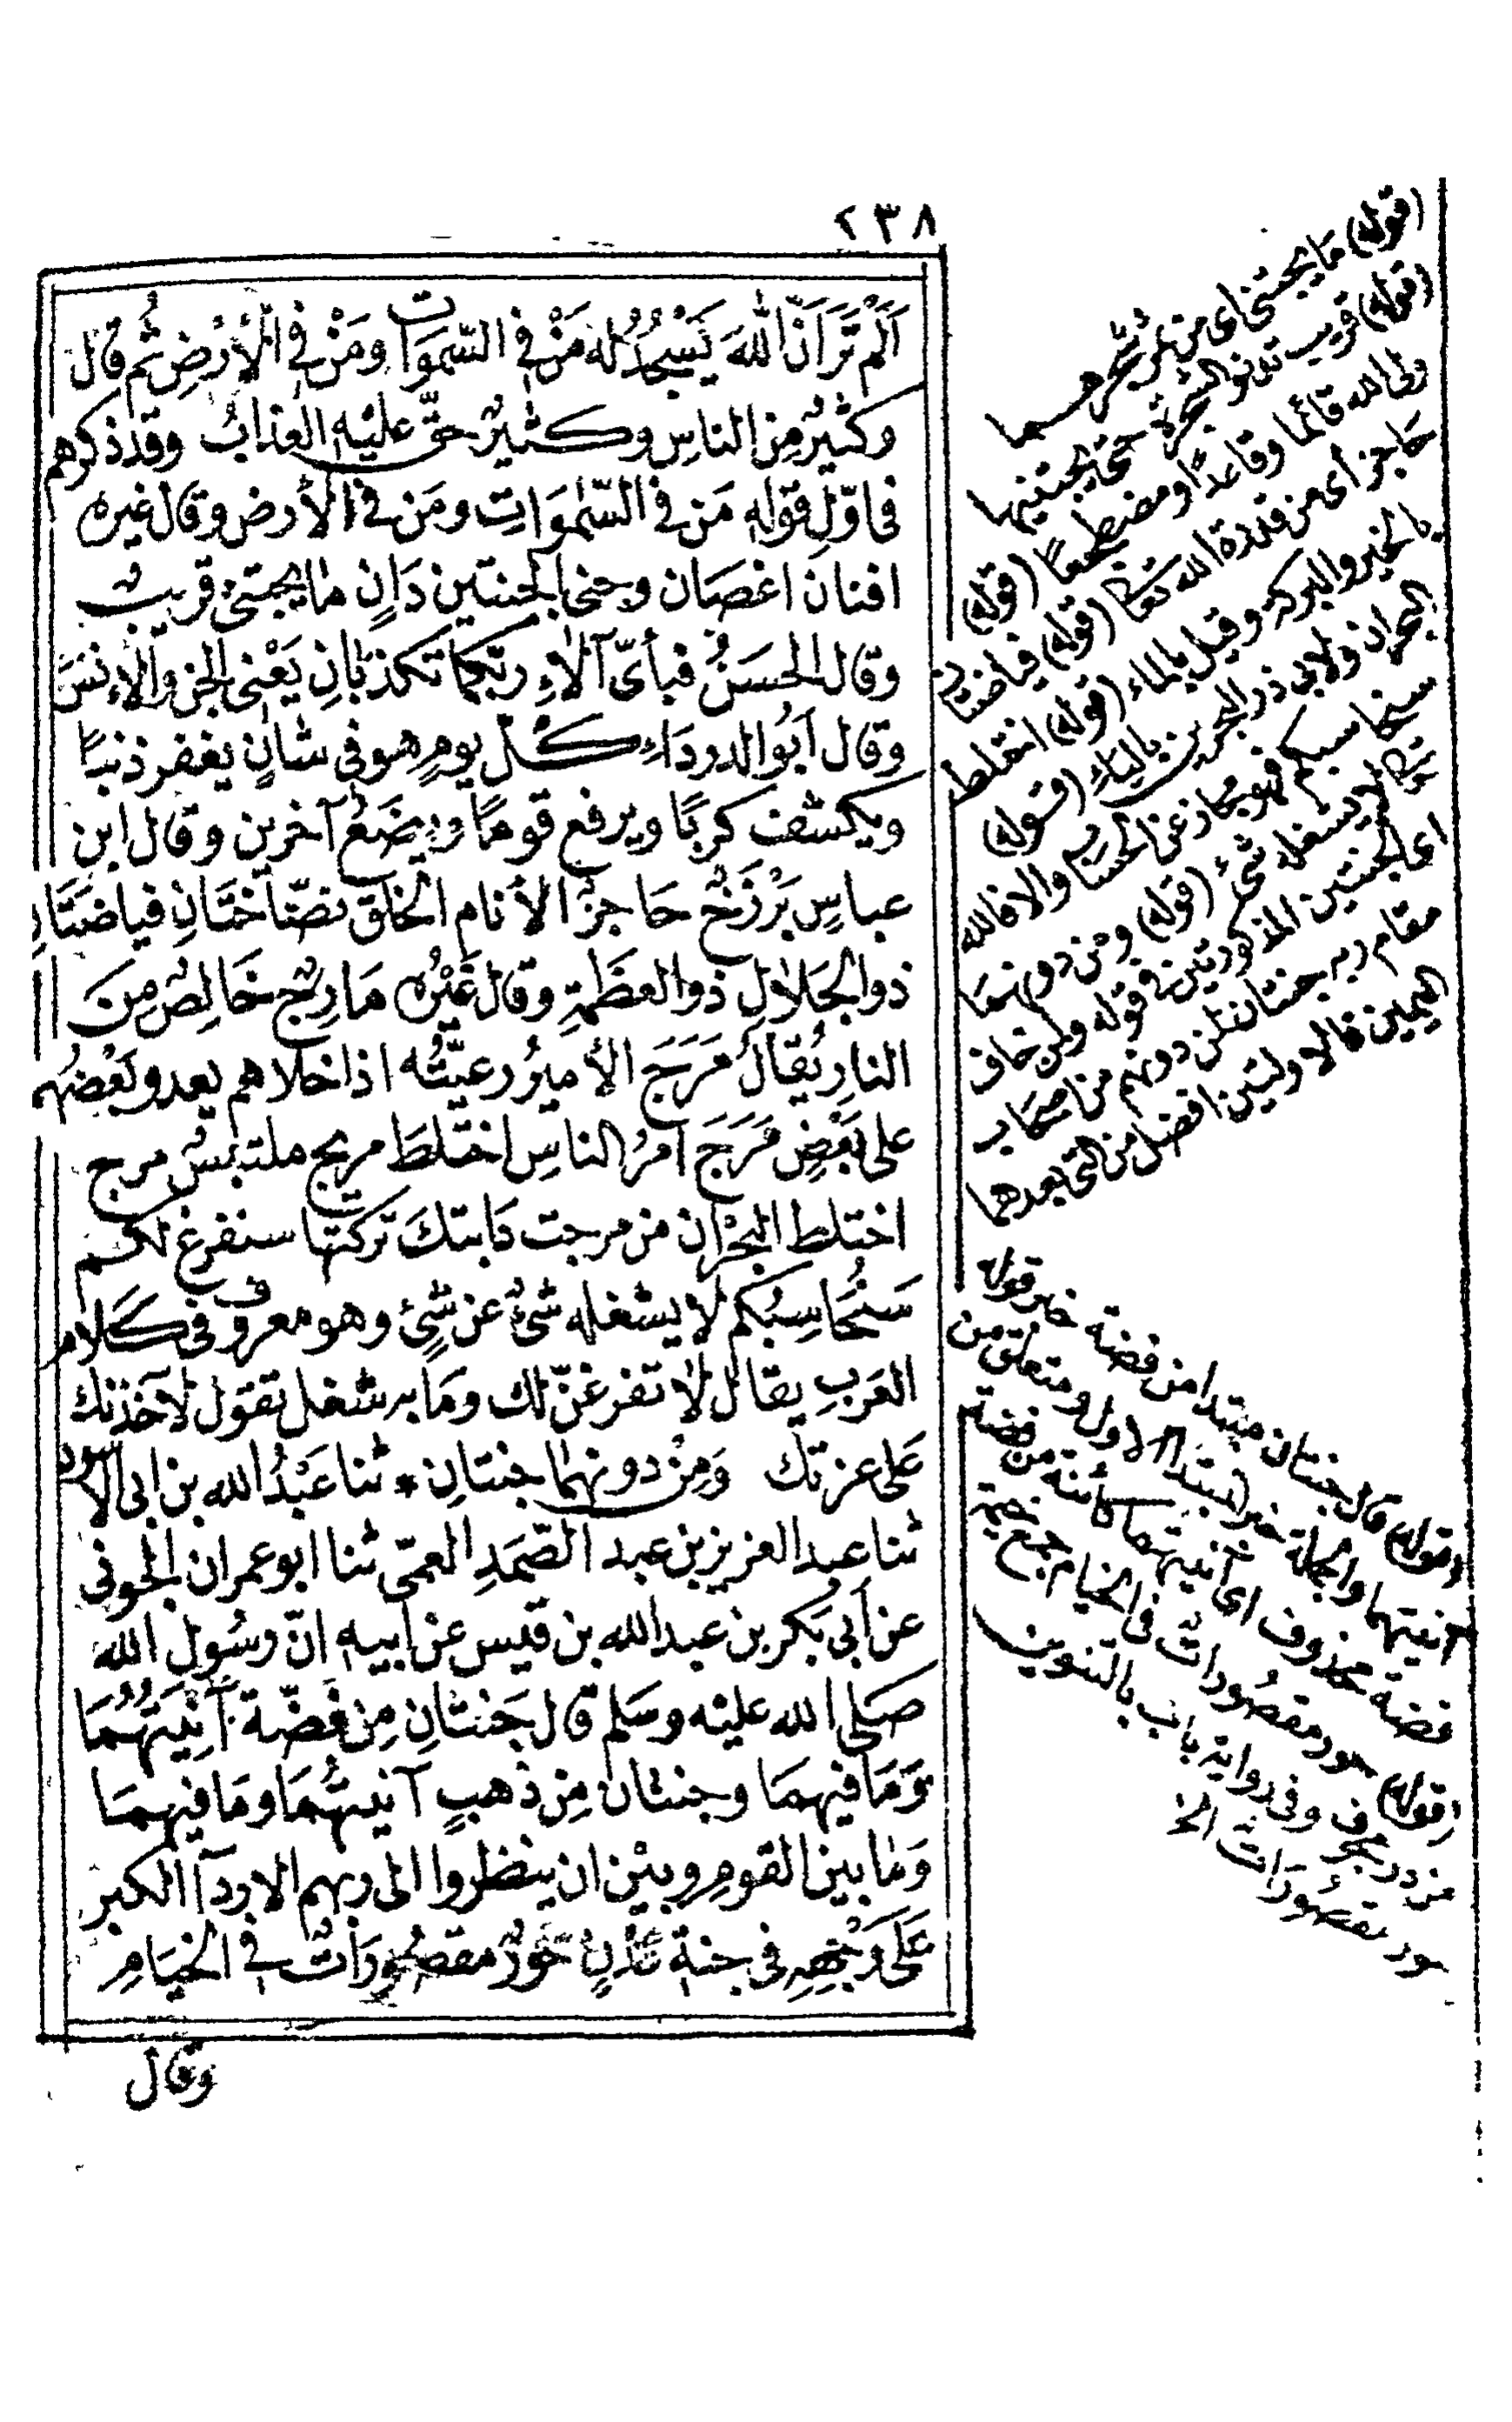 ٢٣٨
اَلَمْ تَرَ اَنَّ اللهَ يَسْجُدُ لَهُ مَنْ فِي السَّمٰوَاتِ وَمَنْ فِي الْأَرْضِ ثُمَّ قال
وكثيرٌ مِنَ الناسِ وكثيرٌ حقَّ عليْهِ العذابُ وقد ذكرهم
فى اوّلِ قوْلِهِ مَن فى السّمٰوَاتِ ومَن فى الأرض وقال غيره
افنان اغصَان وجنى الجنتين دَانٍ ما يجتنىٰ قريبٌ
وقال الحسَنُ فبأىّ آلاءِ ربّكما تكذبَانِ يَعْنى الجن والإنسَ
وقال اَبُو الدردَاءِ كلّ يومٍ هو فى شانٍ يغفر ذنبًا
ويكشف كربًا ويرفع قومًا ويضَعُ آخرين وقال ابن
عباسٍ بَرْزَخٌ حَاجزٌ الأنام الخلق نضّاختَانِ فياضتَانِ
ذو الجَلالِ ذو العظَمةِ وقال غَيْرُه مَارِجٌ خَالِصٌ مِنَ
النارِ يُقالُ مَرَجَ الأميرُ رعيّتُه اذا خلاهم يعدو بَعْضُهم
على بَعْضٍ مَرَجَ امرُ الناسِ اختلطَ مريج ملتبسٌ مرج
اختلط البحْرَان من مرجت دَابتكَ تركتها سنفرغ لكم
سَنُحَاسِبُكم لا يشغله شىْءٌ عن شىْءٍ وهو معروف فى كلام
العَرَبِ يقال لأتفرغنّ لك ومَا به شغل تقول لآخذنك
عَلى غرتك وَمِنْ دونهما جنتانِ * ثنا عَبْدُ الله بن ابى الأسود
ثنا عبد العزيز بن عبد الصّمَدِ العمّى ثنا ابو عمران الجونى
عن أبى بَكر بن عبد الله بن قيس عن أبيهِ انّ رسُول الله
صَلى الله عليْه وسَلم قال جَنتَانِ مِن فِضّة آنِيَتُهُمَا
وَمَا فيهمَا وجنتان مِن ذهبٍ آنيتُهُمَا ومَا فيهمَا
وَمَا بين القومِ وبيْن ان ينظروا الى ربهم الا ردآ الكبر
عَلَى وَجْهِهِ فى جنةِ عَدْنٍ حُورٌ مقصُورَاتٌ فى الخيَامِ
وقال
(قوله) ما يجتنى اى من ثمر شجرهما
(قوله) قريب تدنو الشجرة حتى يجتنيها
ولى الله قائما وقاعدًا ومضطجعًا (قوله)
حاجز اى من قدرة الله تعالى (قوله) فياضتان
بالخير والبركة وقيل بالماء (قوله) اختلط
البحران ولابى ذر البحرين بالياءِ (قوله)
سنحاسبكم فهو مجاز عن الحساب والا فالله
تعالى لا يشغله شىء (قوله) ومن دونهما
اى الجنتين المذكورتين فى قوله ولمن خاف
مقام ربه جنتان لمن دونهم من اصحاب
اليمين فالاوليتين افضل من التى بعدها
(قوله) قال جنتان مبتدا من فضة خبر قوله
آنيتها والجملة خبر المبتدا الاول ومتعلق من
فضة محذوف اى آنيتهما كائنة من فضة
(قوله) حور مقصُورات فى الخيام جمع خيمة
من در مجوف وفى رواية باب بالتنوين
حور مقصُورَات الخ